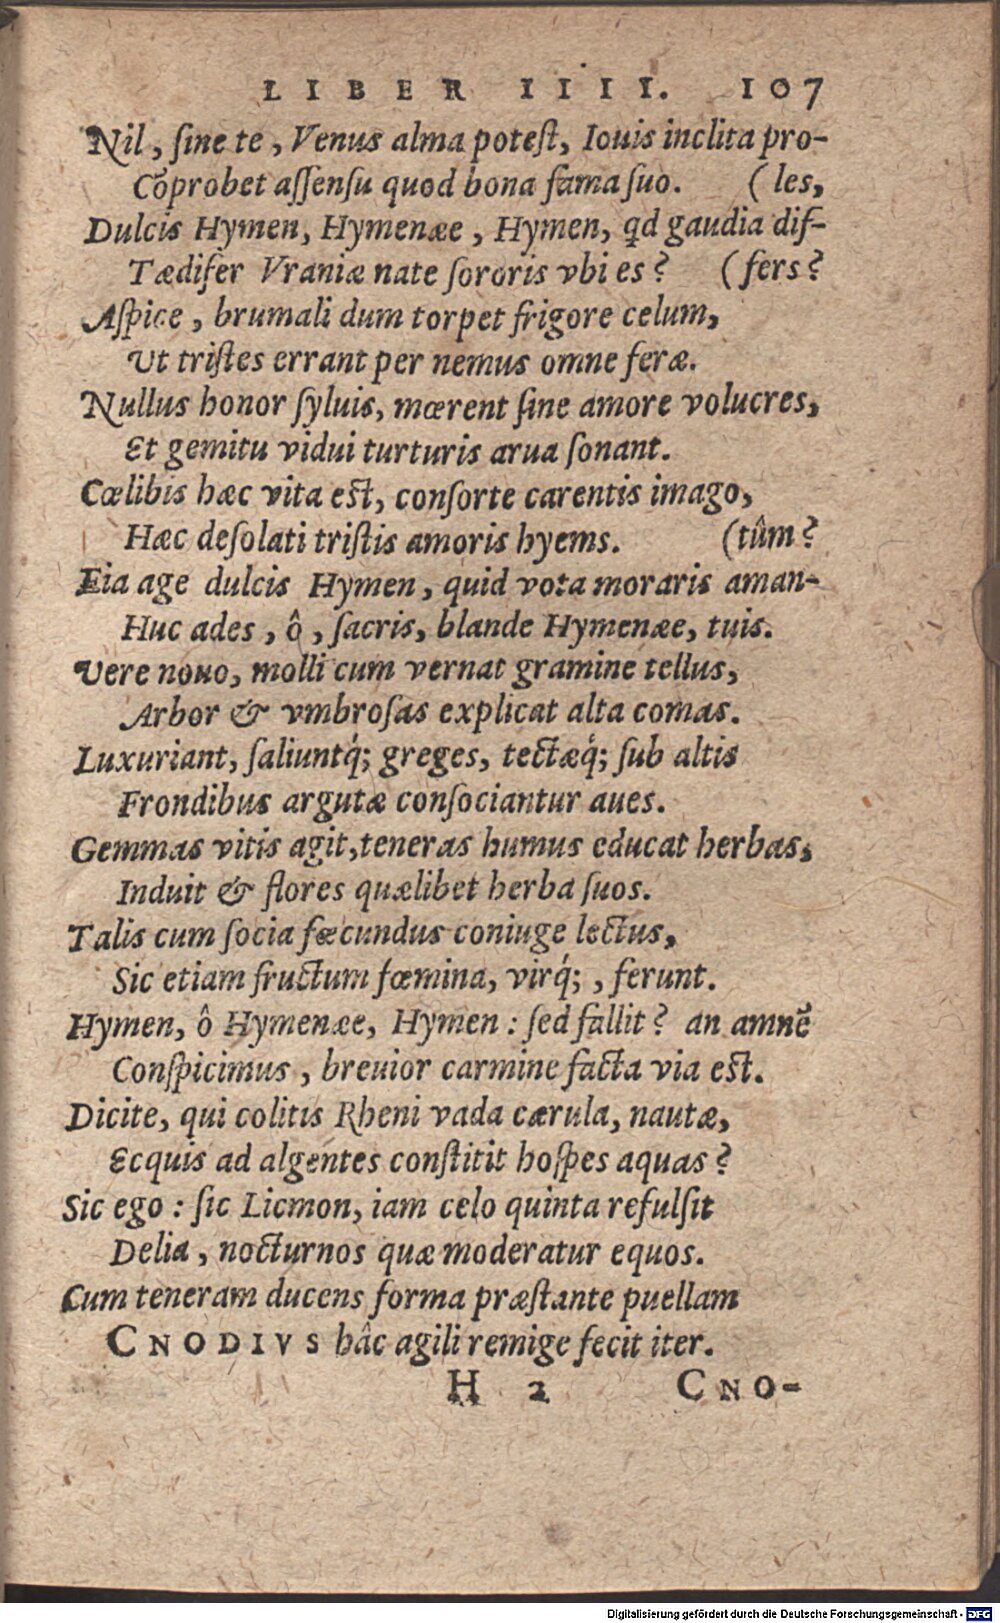 LIBER IIII. 107
Nil, ſine te, Venus alma poteſt, Iouis inclita pro-
Cõprobet aſſenſu quod bona fama ſuo. (les,
Dulcis Hymen, Hymenæe, Hymen, qd gaudia dif-
Tædifer Vraniæ nate ſororis vbi es? (fers?
Aſpice, brumali dum torpet frigore celum,
Ut triſtes errant per nemus omne feræ.
Nullus honor ſyluis, mœrent ſine amore volucres,
Et gemitu vidui turturis arua ſonant.
Cœlibis hæc vita eſt, conſorte carentis imago,
Hæc deſolati triſtis amoris hyems. (tûm?
Eia age dulcis Hymen, quid vota moraris aman-
Huc ades, ô, ſacris, blande Hymenæe, tuis.
Vere nouo, molli cum vernat gramine tellus,
Arbor & vmbroſas explicat alta comas.
Luxuriant, ſaliuntq́; greges, tectæq́; ſub altis
Frondibus argutæ conſociantur aues.
Gemmas vitis agit, teneras humus educat herbas,
Induit & flores quælibet herba ſuos.
Talis cum ſocia fœcundus coniuge lectus,
Sic etiam fructum fœmina, virq́;, ferunt.
Hymen, ô Hymenæe, Hymen: ſed fallit? an amnẽ
Conſpicimus, breuior carmine facta via eſt.
Dicite, qui colitis Rheni vada cærula, nautæ,
Ecquis ad algentes conſtitit hoſpes aquas?
Sic ego: ſic Licmon, iam celo quinta refulſit
Delia, nocturnos quæ moderatur equos.
Cum teneram ducens forma præſtante puellam
CNODIVS hâc agili remige fecit iter.
H 2 CNO-
Digitalisierung gefördert durch die Deutsche Forschungsgemeinschaft - DFG